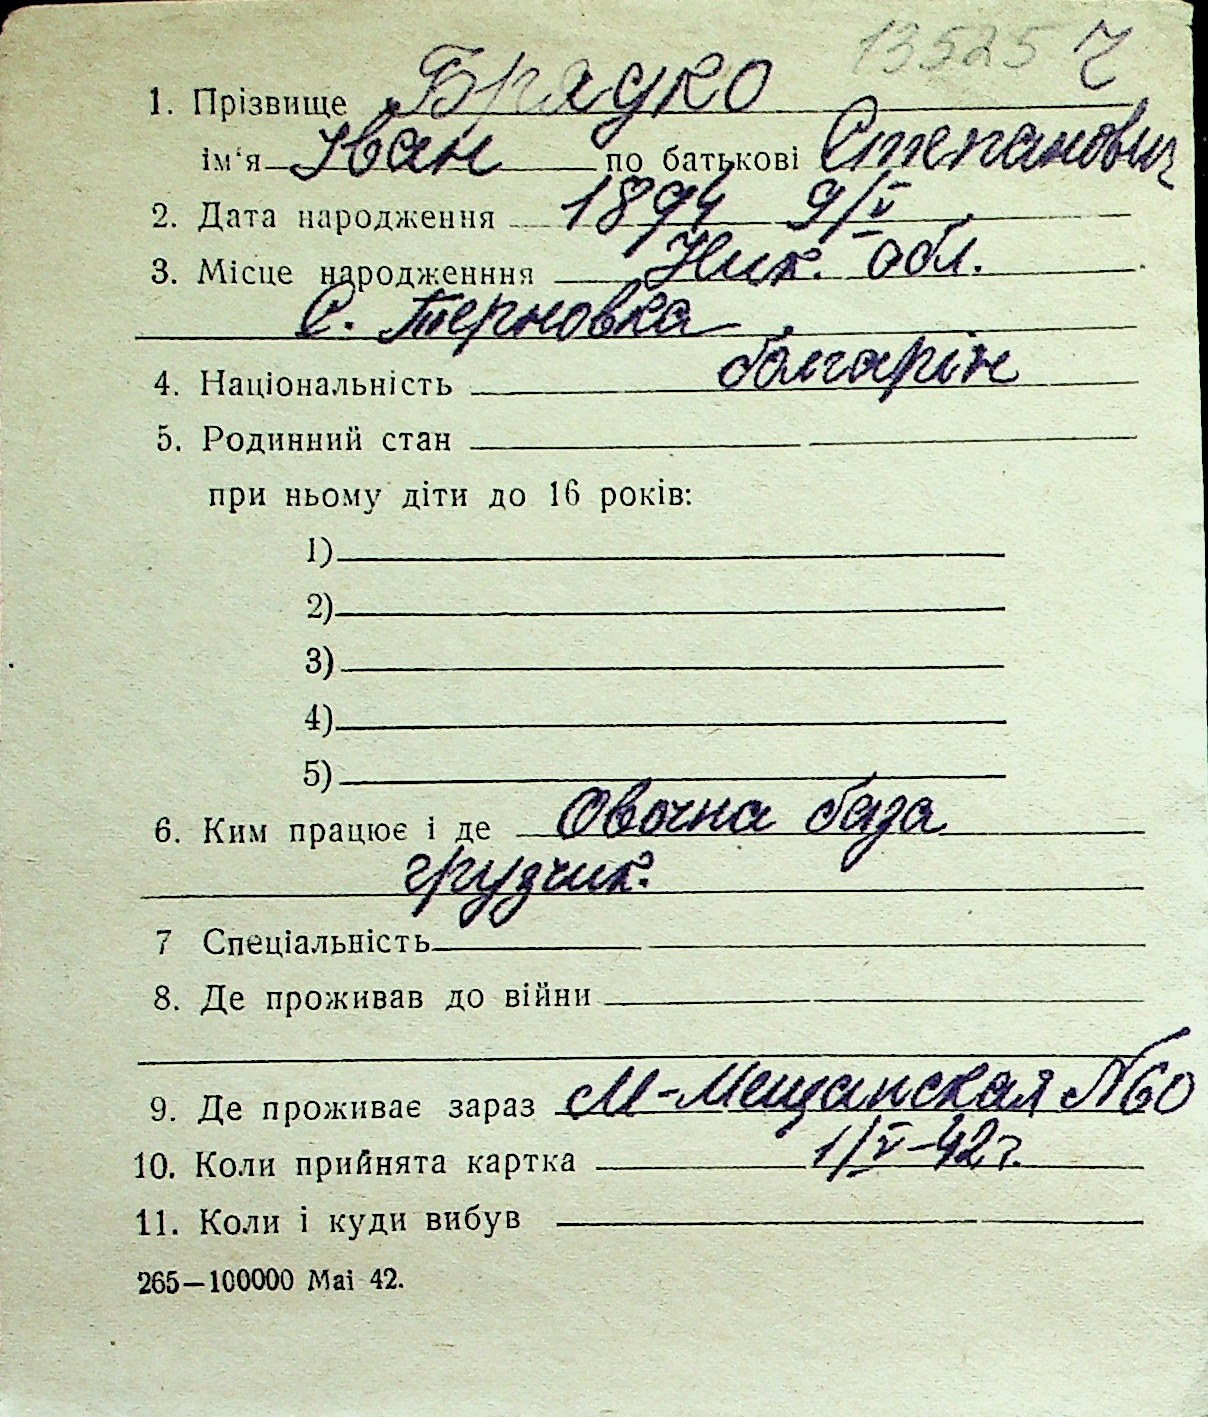 13525 Ч
1. Прізвище Брядко
ім'я Іван по батькові Степанович
2. Дата народження 1894 9/V
3. Місце народженння Ник. обл.
С. Терновка
4. Національність болгарін
5. Родинний стан
при ньому діти до 16 років:
1)
2)
3)
4)
5)
6. Ким працює і де Овочна база
грузчик.
7 Спеціальність
8. Де проживав до війни
9. Де проживає зараз М-Мещанская №60
10. Коли прийнята картка 1/V-42г.
11. Коли і куди вибув
265—100000 Mai 42.